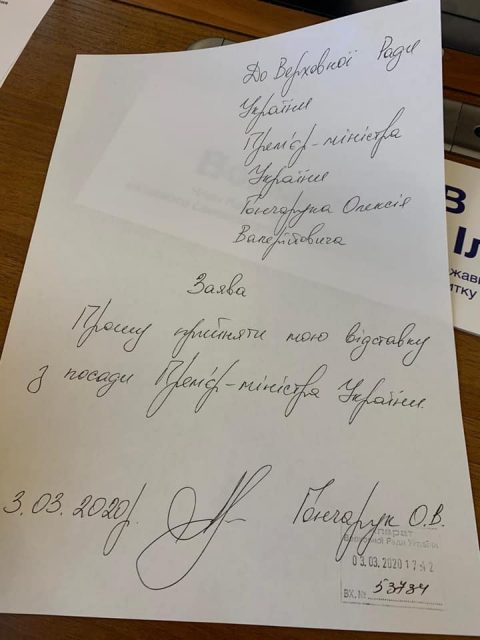 До Верховної Ради
України
Прем'єр-міністра
України
Гончарука Олексія
Валерійовича
Заява
Прошу прийняти мою відставку
з посади Прем'єр-міністра України.
3.03.2020р.
Гончарук О.В.
Апарат
Верховної Ради України
03.03.2020 17 42
ВХ.№ 53734
В
Іл